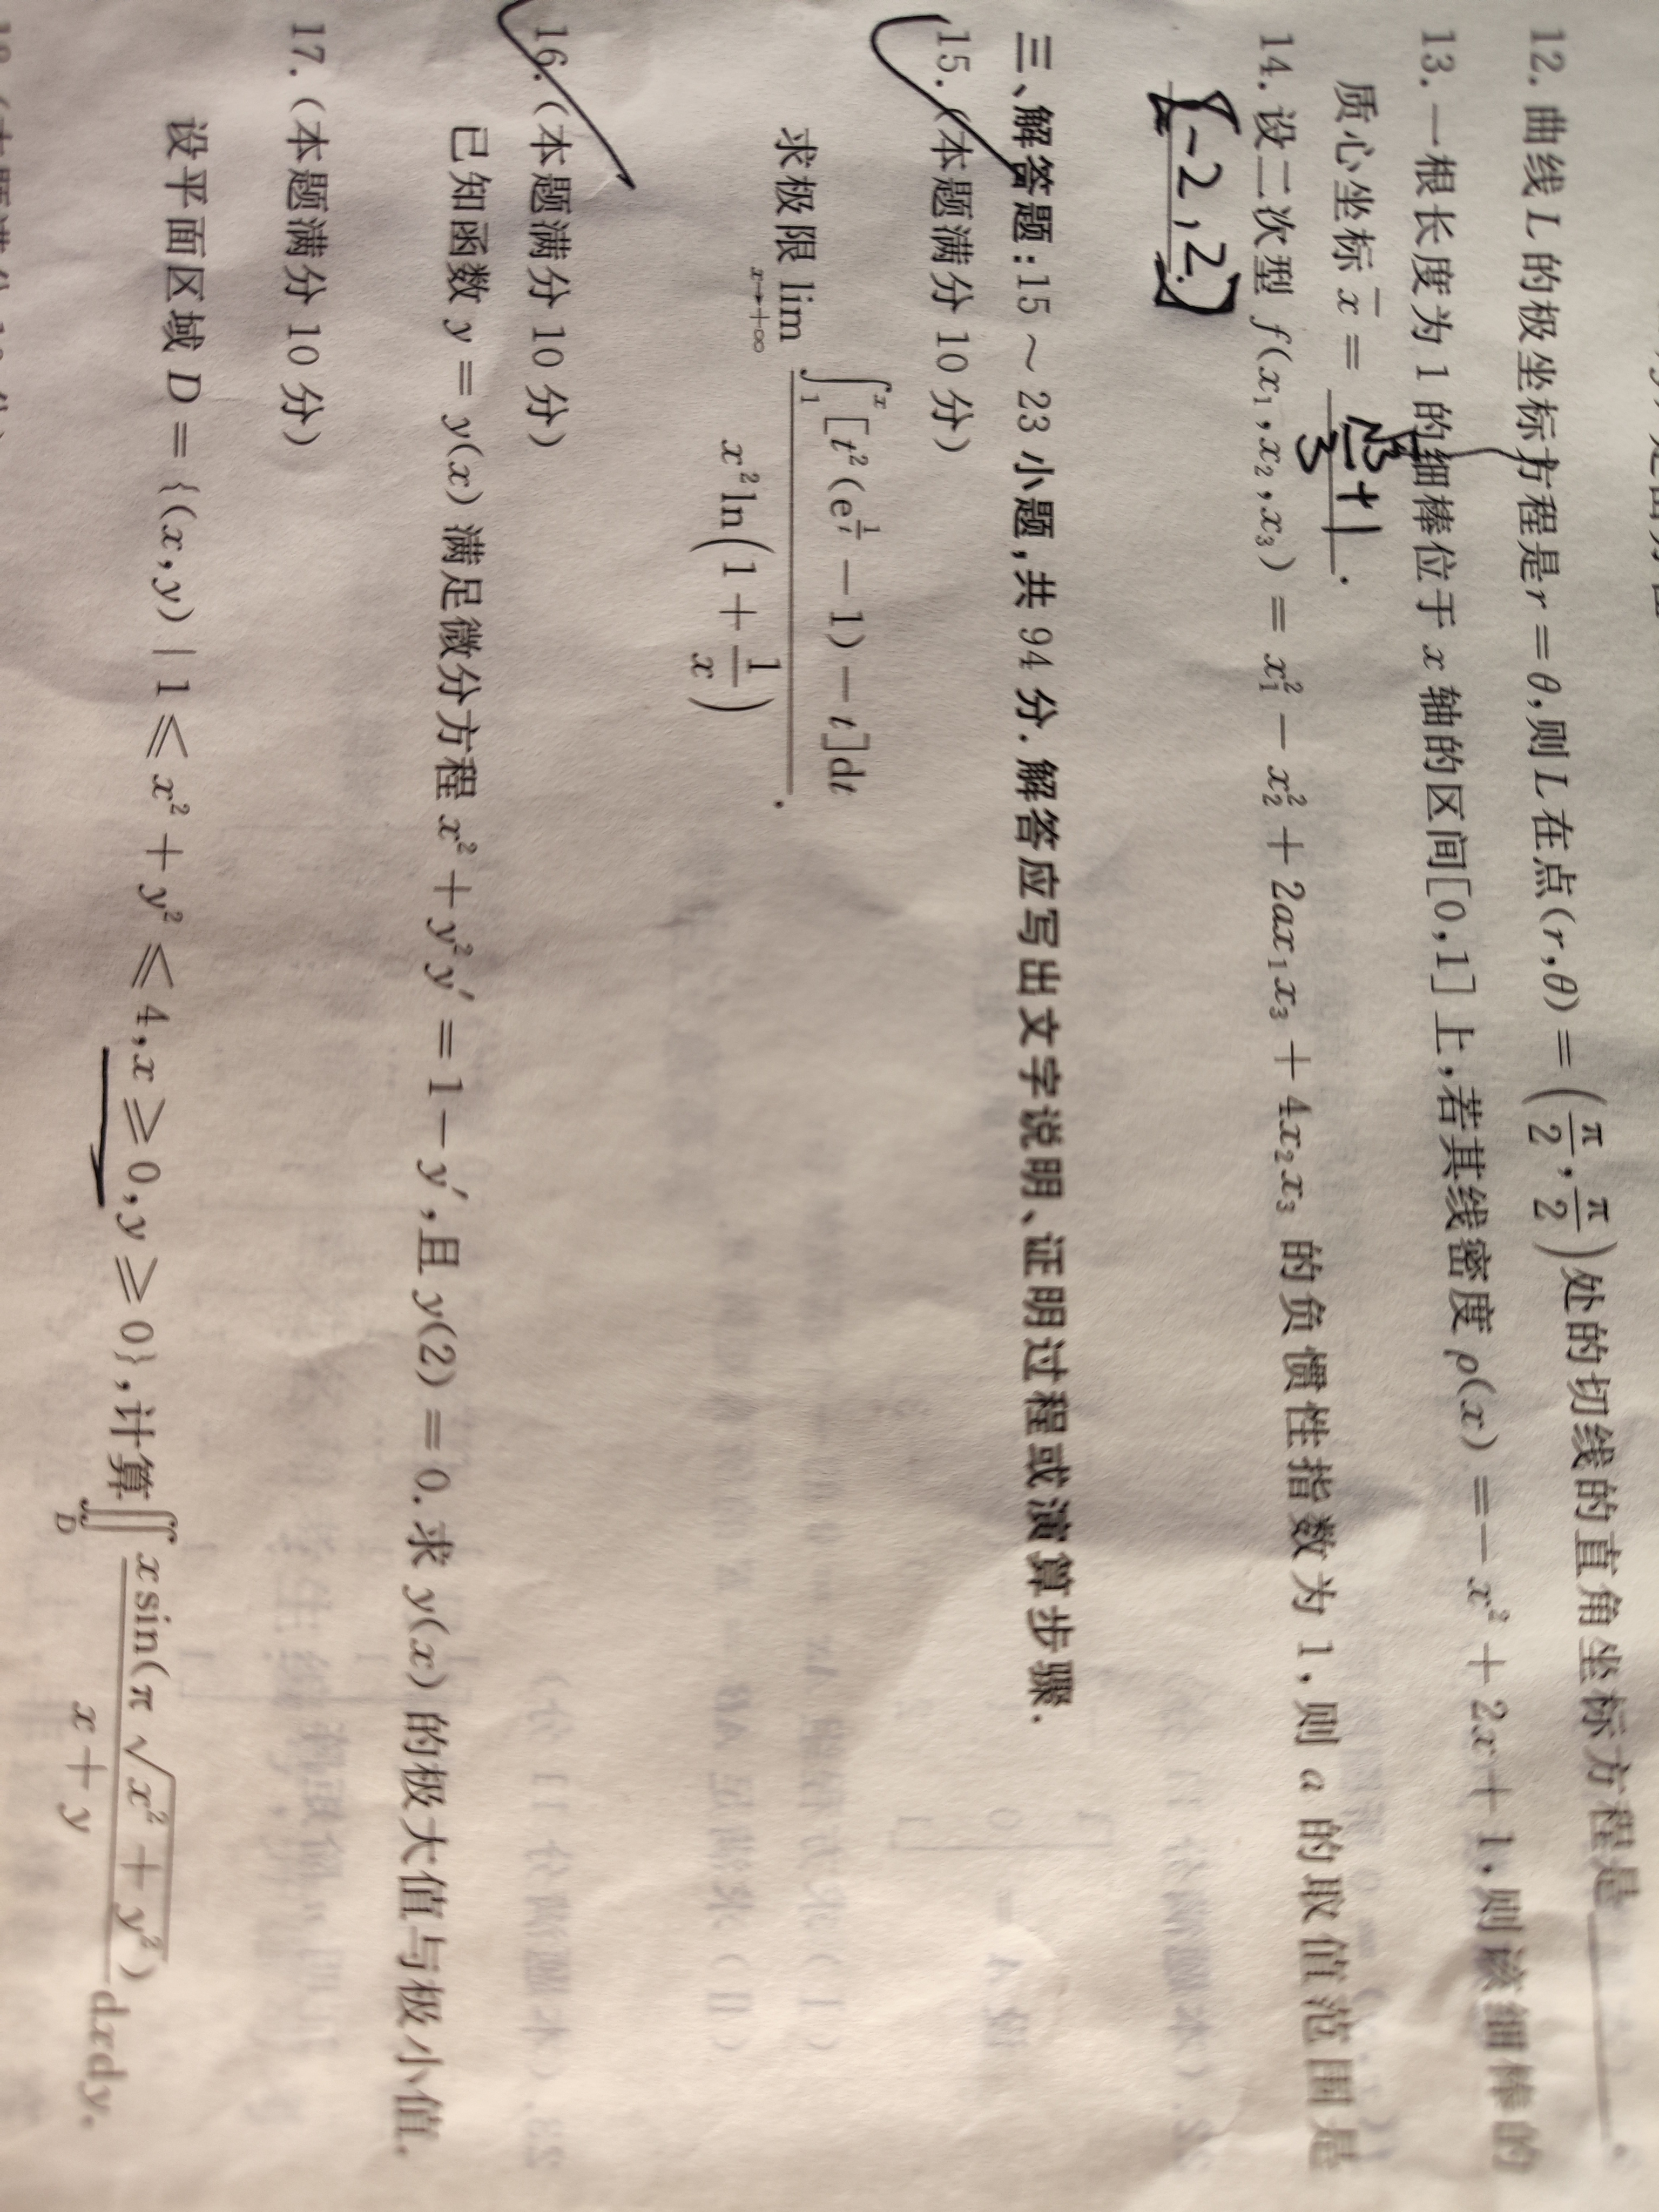 12. 曲线 L 的极坐标方程是 r = θ,则 L 在点(r,θ) = (π/2, π/2)处的切线的直角坐标方程是______.
13. 一根长度为 1 的细棒位于 x 轴的区间[0,1]上,若其线密度 ρ(x) = − x² + 2x + 1,则该细棒的
质心坐标 x̄ = ______.
14. 设二次型 f(x₁,x₂,x₃) = x₁² − x₂² + 2ax₁x₃ + 4x₂x₃ 的负惯性指数为 1,则 a 的取值范围是
[-2,2]
三、解答题:15 ~ 23 小题,共 94 分.解答应写出文字说明、证明过程或演算步骤.
15. (本题满分 10 分)
求极限 lim_{x→+∞} ∫₁ˣ [t²(e^{1/t} − 1) − t]dt / x²ln(1 + 1/x).
16. (本题满分 10 分)
已知函数 y = y(x) 满足微分方程 x² + y²y′ = 1 − y′,且 y(2) = 0. 求 y(x) 的极大值与极小值.
17. (本题满分 10 分)
设平面区域 D = {(x,y) | 1 ≤ x² + y² ≤ 4,x ≥ 0,y ≥ 0},计算∬_D x sin(π√(x² + y²)) / (x + y) dxdy.